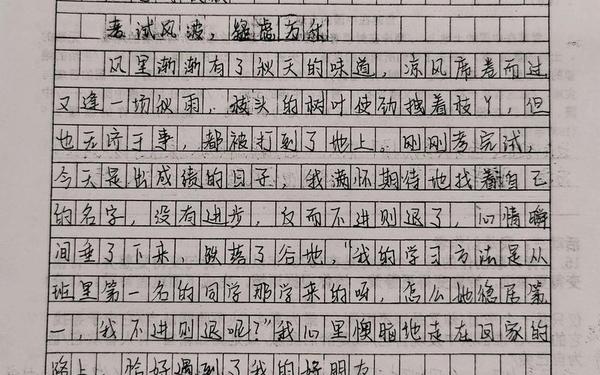 考试风波，疑虑为ន
风里渐渐有了秋天的味道，凉风席卷而过
又逢一场秋雨。枝头的树叶使劲拽着枝丫，但
也无济于事，都被打到了地上。刚刚考完试，
今天是出成绩的日子，我满怀期待地找着自己
的名字，没有进步，反而不进则退了，心情瞬
间垂了下来，跌落了谷地，“我的学习方法是从
班里第一名的同学那学来的呀，怎么她稳居第
一，我不进则退呢？”我心里懊恼地走在回家的
路上，恰好遇到了我的好朋友